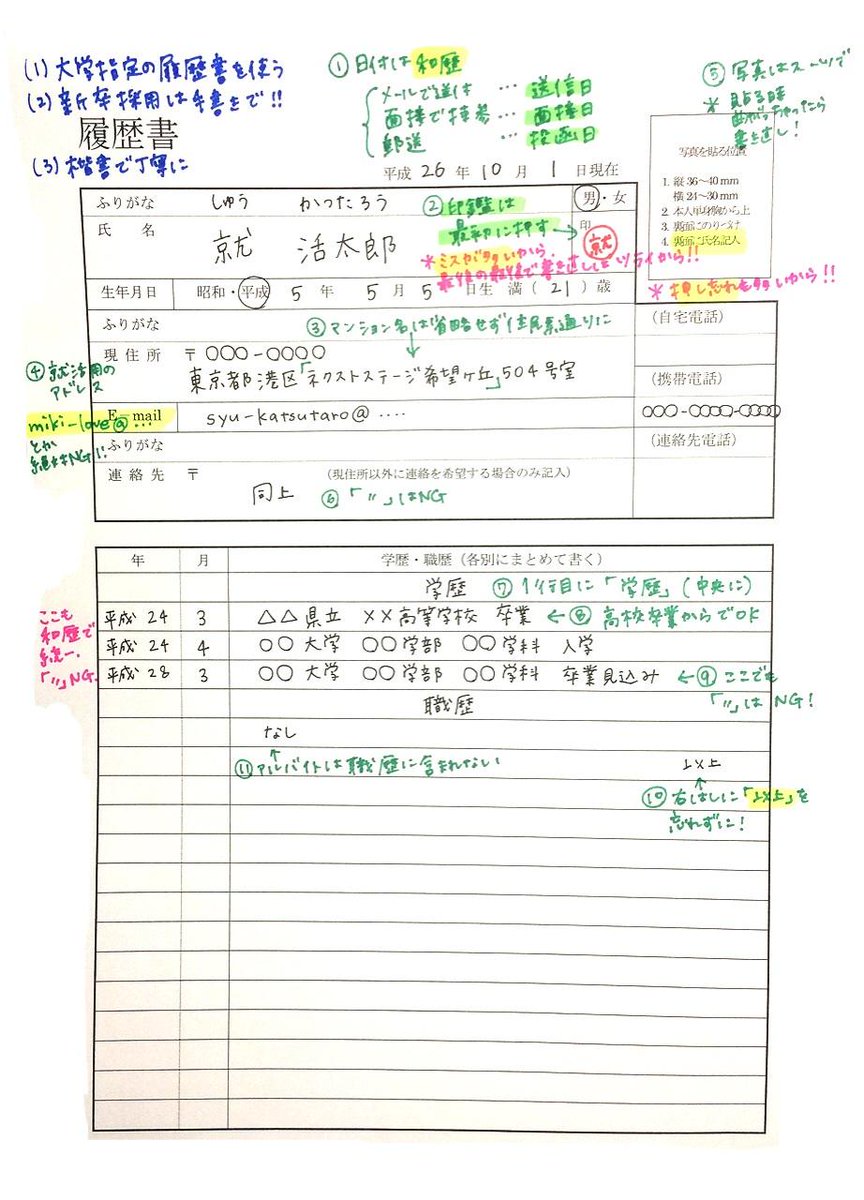 (1) 大学指定の履歴書を使う
(2) 新卒採用は手書きで!!
履歴書
(3) 楷書で丁寧に
① 日付は和歴
メールで送付 … 送信日
面接で持参 … 面接日
郵送 … 投函日
⑤ 写真はスーツで
* 貼る時
曲がっちゃったら
書き直し!
写真を貼る位置
1. 縦 36～40 mm
横 24～30 mm
2. 本人単身胸から上
3. 裏面にのりづけ
4. 裏面に氏名記入
* 押し忘れも多いから!!
平成 26 年 10 月 1 日現在
ふりがな しゅう かつたろう
男・女
② 印鑑は
最初に押す→
氏名 就 活太郎
印
就
* ミスが多いから
最後の最後で書き直しはツライから!!
生年月日 昭和・平成 5 年 5 月 5 日生 満 ( 21 ) 歳
ふりがな
③ マンション名は省略せず住民票通りに
(自宅電話)
現住所 〒 ○○○-○○○○
東京都港区「ネクストステージ希望ヶ丘」504号室
④ 就活用の
アドレス
(携帯電話)
○○○-○○○○-○○○○
E－mail syu-katsutaro@ ....
miki-love@ ...
とか
絶対NG!!
ふりがな
(連絡先電話)
連絡先 〒 (現住所以外に連絡を希望する場合のみ記入)
同上 ⑥ 「〃」はNG
年 月 学歴・職歴（各別にまとめて書く）
学歴 ⑦ 1行目に「学歴」(中央に)
平成 24 3 △△県立 ××高等学校 卒業 ← ⑧ 高校卒業からでOK
平成 24 4 ○○ 大学 ○○ 学部 ○○ 学科 入学
平成 28 3 ○○ 大学 ○○ 学部 ○○ 学科 卒業見込み ← ⑨ ここでも
「〃」はNG!
ここも
和歴で
統一.
「〃」NG.
職歴
なし
⑪ アルバイトは職歴に含まれない
以上
⑩ 右はしに「以上」を
忘れずに!